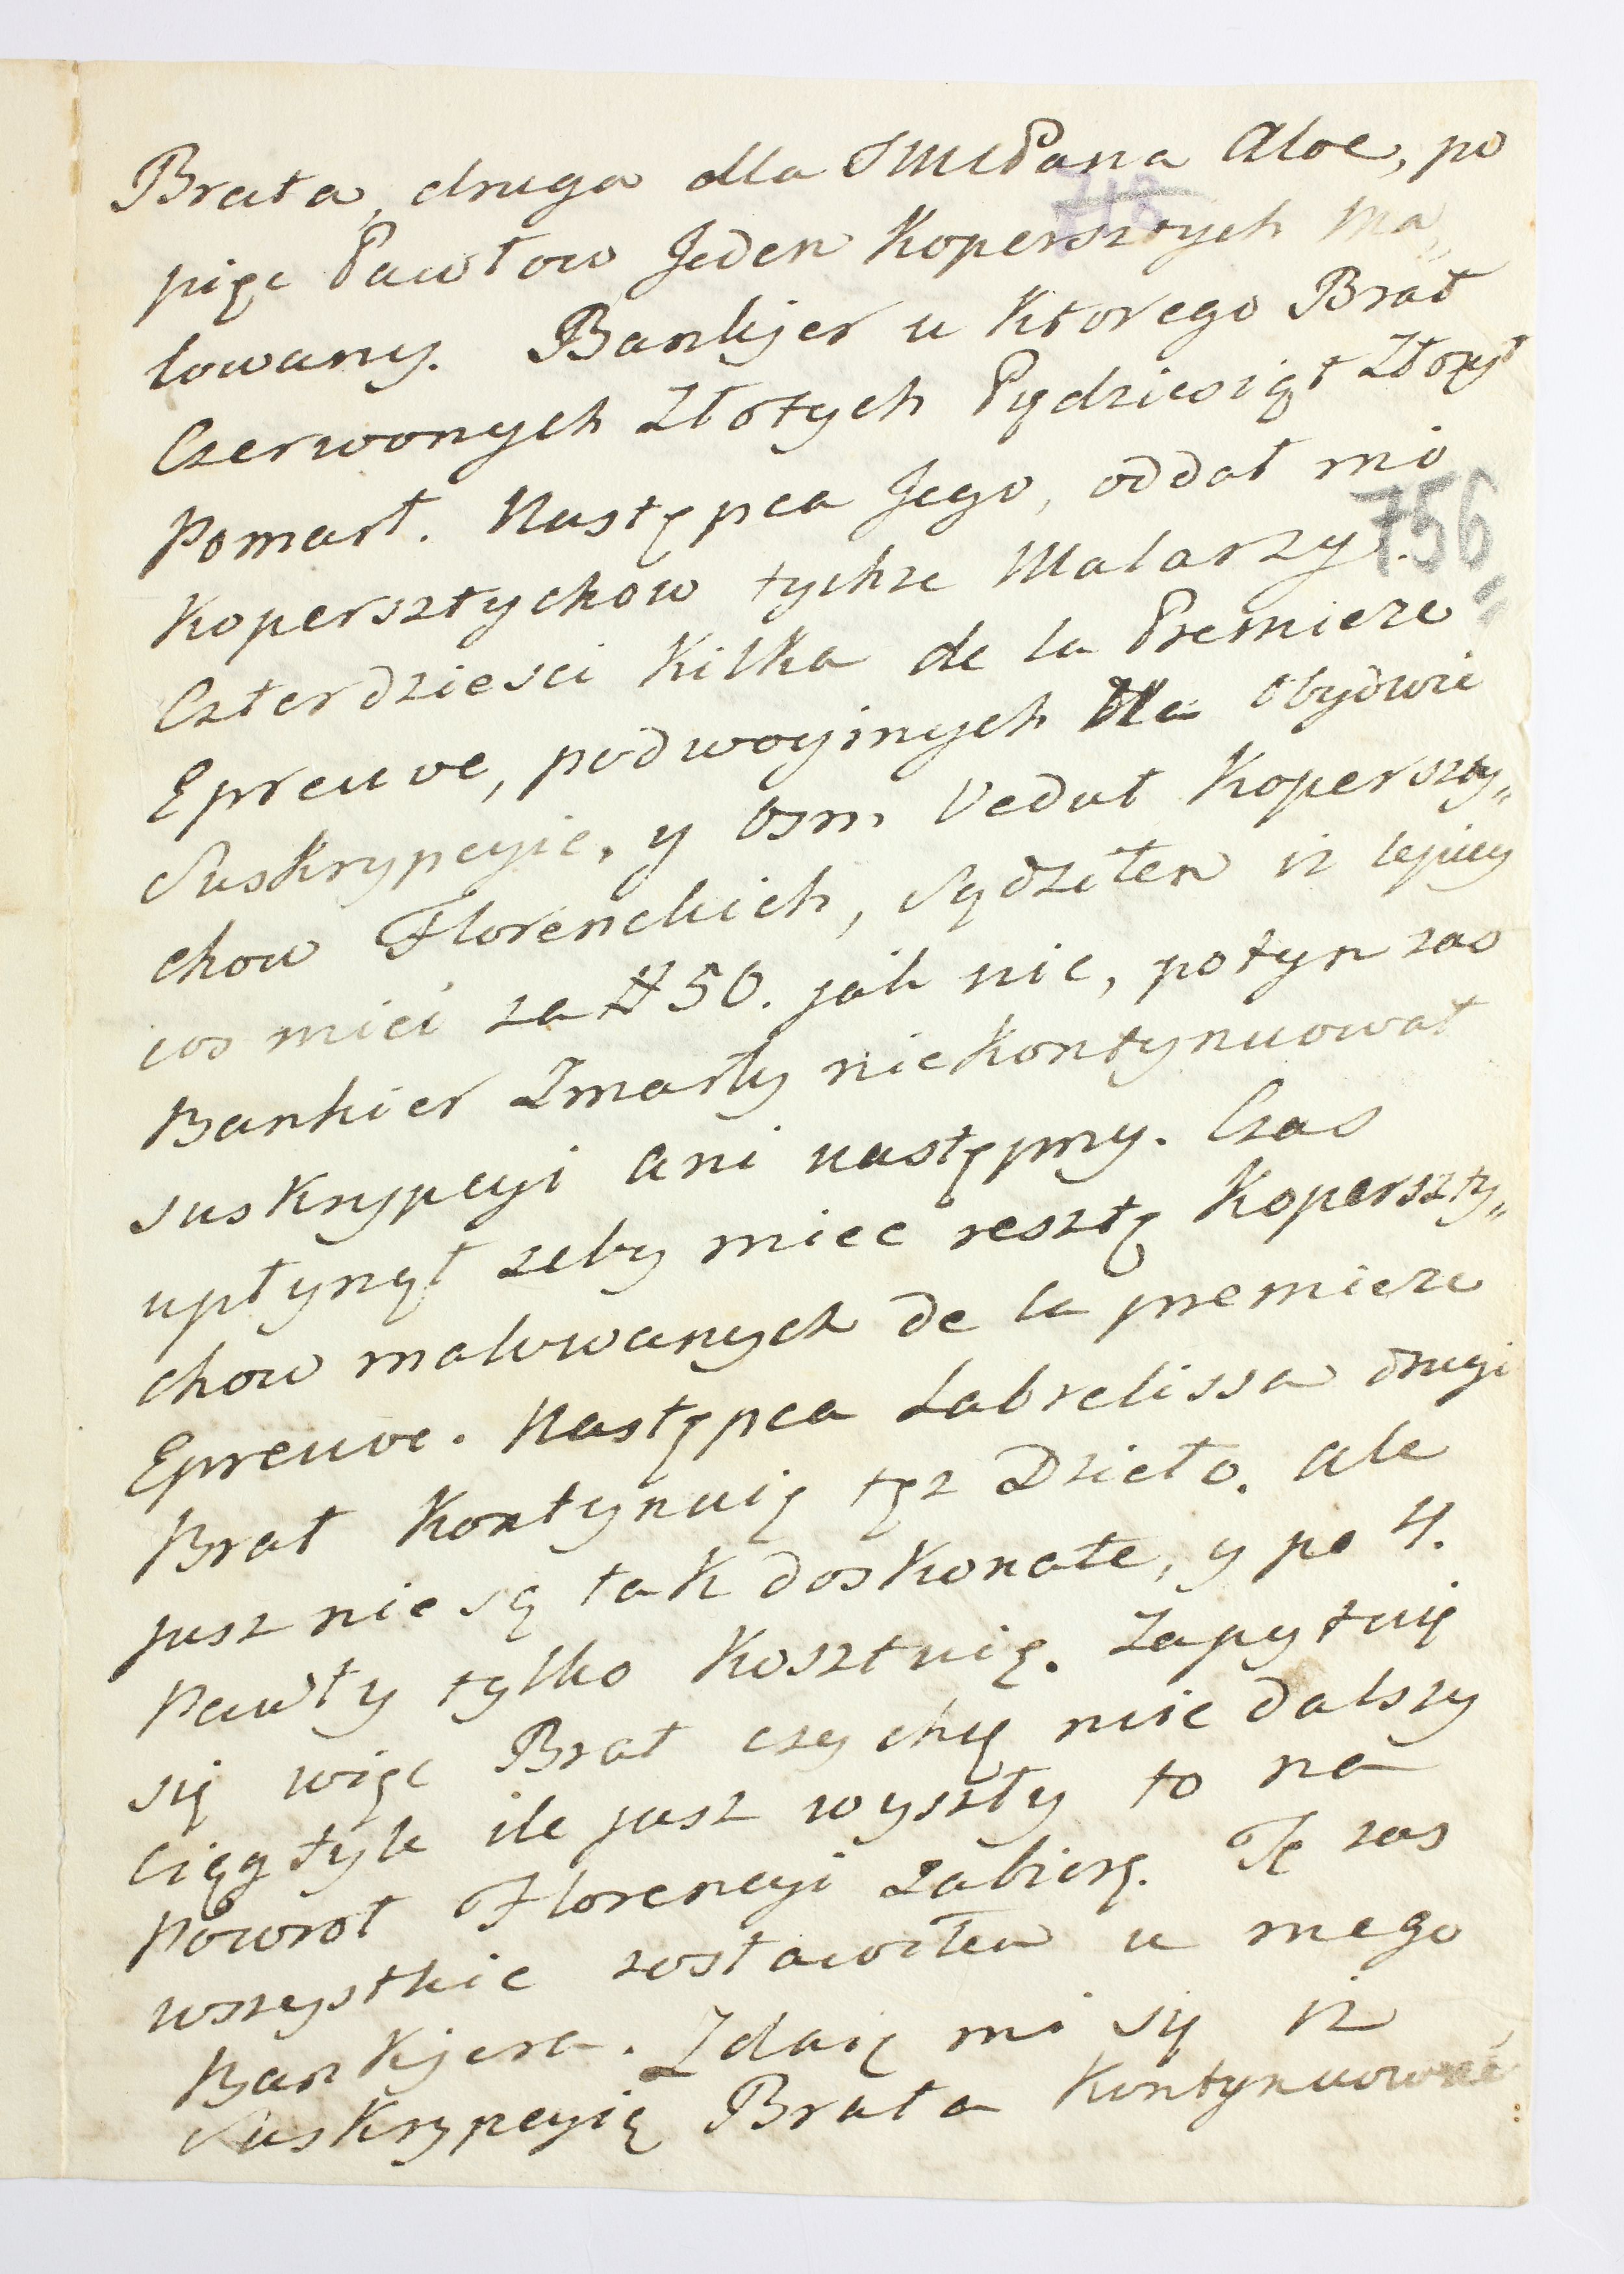 Brata, druga dla JMCiPana Aloe, po
718
pięc Pawłow Jeden Kopersztych ma„
lowany. Bankjer u Ktorego Brat
Czerwonych Złotych Pędziesiąt Złożył
Pomarł. Następca Jego, oddał mi
756
Kopersztychow tychze Malarzy.
Czterdziesci Kilka de la Premiere
Epreuve, podwoynych dla Obydwie
Suskrypcyie, y osm Vedut Koperszty„
chow Florenckich, Sądziłem iż lepiey
cos mieć za # 50. jak nic, potym zas
Bankier Zmarły niekontynuował
suskrypcyi ani następny. Czas
upłynął zeby miec resztę Koperszty„
chow malowanych de la premiere
Epreuve. Następca Labrelissa drugi
Brat Kontynuię tęz Dzieło. ale
jusz nie są tak doskonałe, y po 4.
Pawły tylko Kosztuię. Zapytuię
się więc Brat czy chcę mie dalszy
ciąg tyle ile jusz wyszły to na
Powrot Florencyi zabiorę. Te zas
wszystkie zostawiłem u mego
Bankjera. Zdaię mi się iż
Suskrypcyię Brata Kontynuować